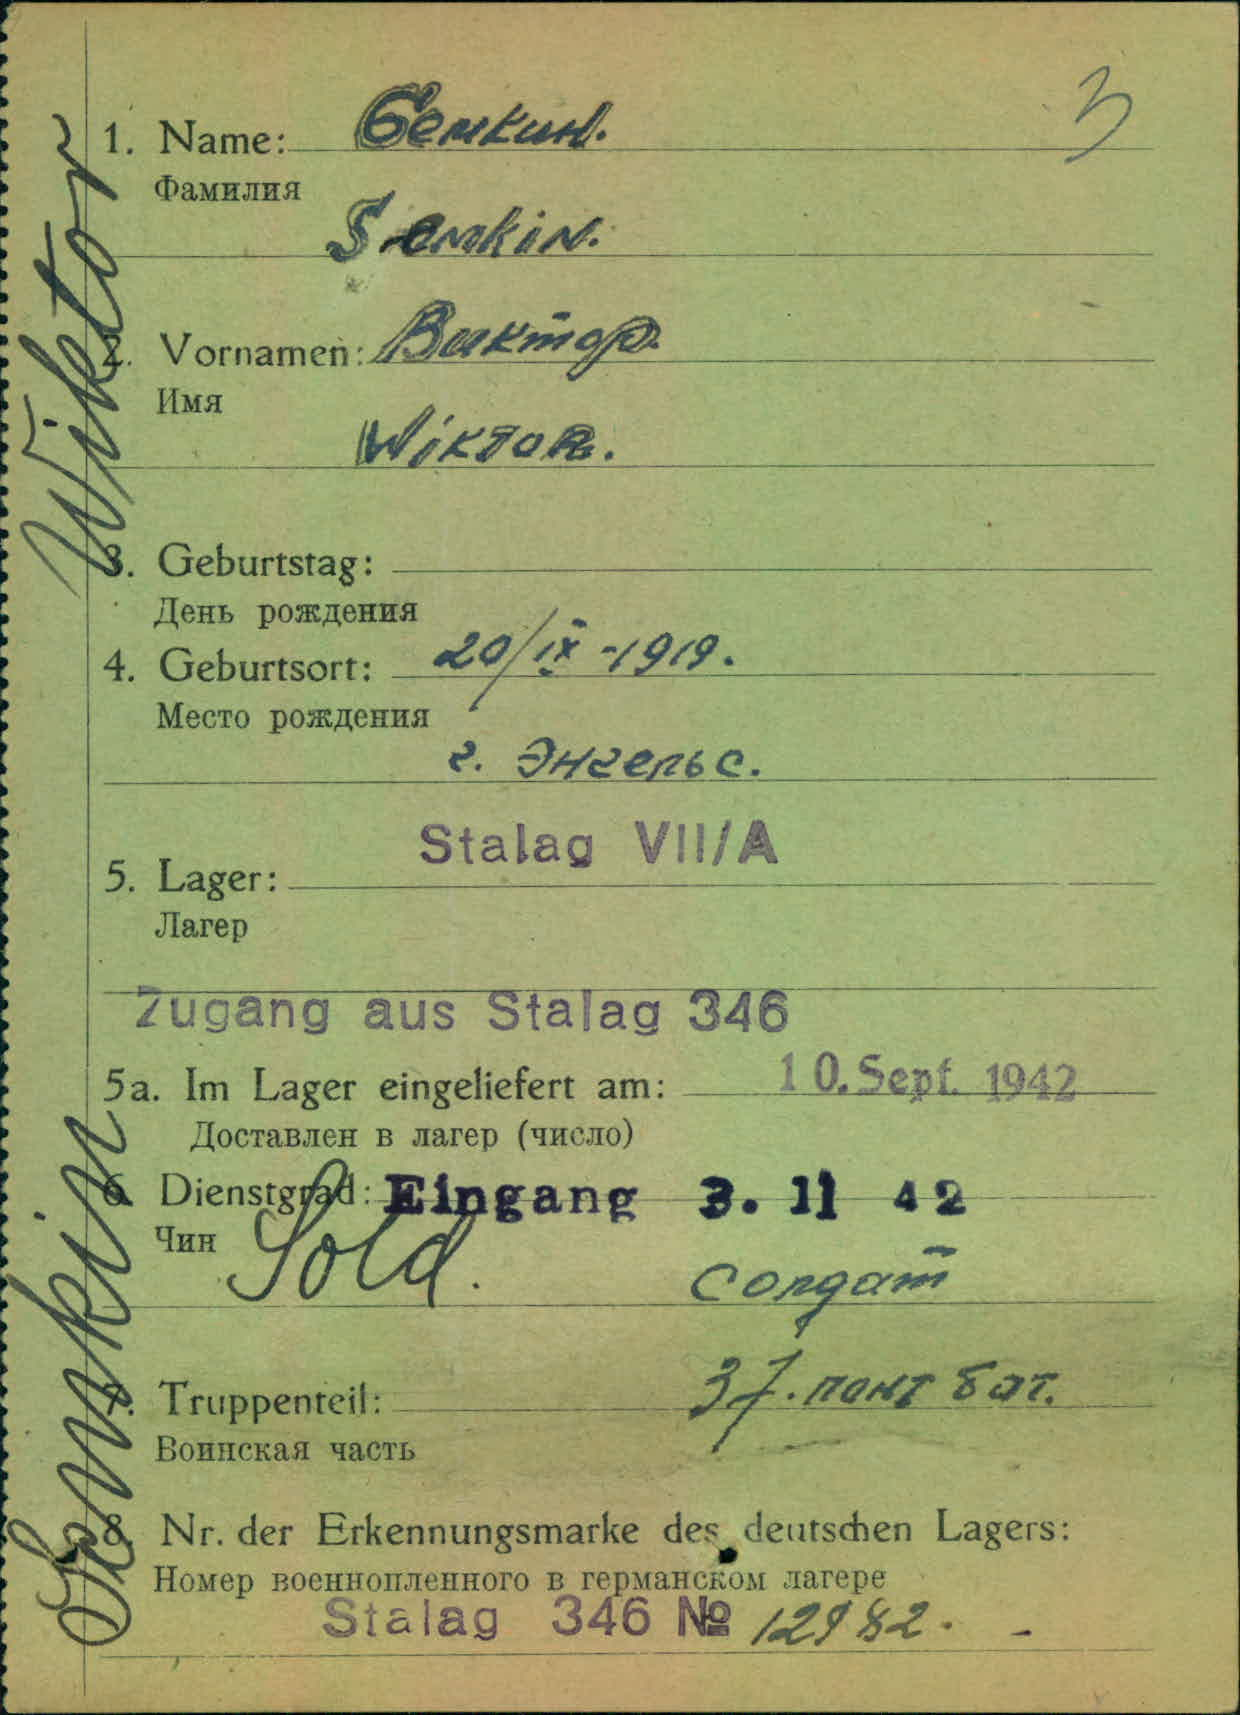 3
1. Name: Семкин.
Фамилия
Semkin.
2. Vornamen: Виктор.
Имя
Wiktor.
3. Geburtstag:
День рождения
20/IX-1919.
4. Geburtsort:
Место рождения
г. Энгельс.
Stalag VII/A
5. Lager:
Лагер
Zugang aus Stalag 346
5a. Im Lager eingeliefert am: 10. Sept. 1942
Доставлен в лагер (число)
6. Dienstgrad: Eingang 3. 11 42
Чин
Sold. солдат
7. Truppenteil: 37. понт бат.
Воинская часть
8. Nr. der Erkennungsmarke des deutschen Lagers:
Номер военнопленного в германском лагере
Stalag 346 № 12982. -
Semkin Wiktor